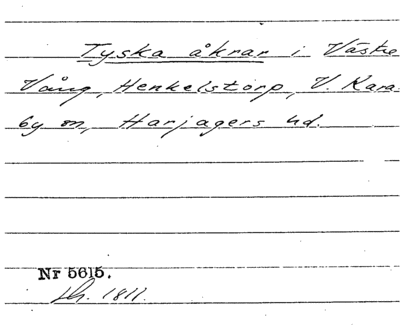 Tyska åkrar i Västre
Vång, Henkelstorp, V. Kara-
by sn, Harjagers hd.
Nr 5615.
1811.